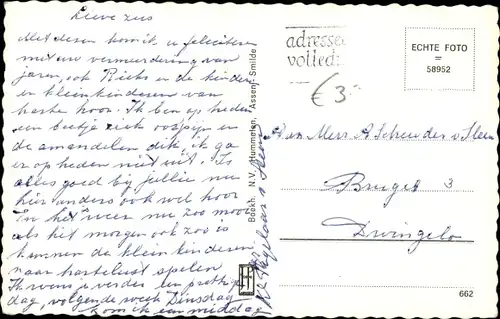 Lieve zus
Met deren kom ik u feliciteren
met uw vermeerdering van
jaren, ook Rieks en de kinderen
en kleinkinderen van
harte hoor. Ik ben op heden
een beetje ziek oorpijn en
de amandelen dik, ik ga
er op heden niet uit. Is
alles goed bij jullie nu
hier anders ook wel hoor
En het weer nu zoo mooi
als het morgen ook zoo is
kunnen de kleinkinderen
naar hartelust spelen
Ik wens u verder een prettige
dag, volgende week Dinsdag
kom ik een middag
adressee
volled:
€ 3
ECHTE FOTO
=
58952
Aan Mevr A Scheuder v Steen
Brugst 3
Dwingelo
Boekh. N.V. Hummelen, (Assen) - Smilde
662